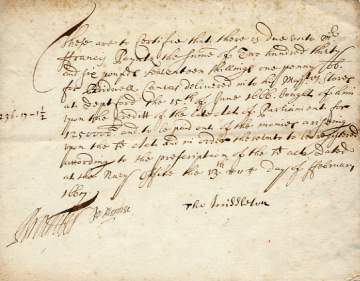 These are to Certifie that there is due unto Mr
Francis Poyntz the summe of Two hundred thirty
and six pounds seventeen shillings one penny ob.
for Bridwell Canvas delivered into his Majties Stores
at deptford the 15th of June 1666. bought of him
236-17-1½
upon the Creditt of the late Act of Parliament for
125000 and to be paid out of the monies arising
upon the sd Act and in order thereunto to be registred
according to the prescription of the sd Act. dated
at the Navy Office the day of ffebruary
166
Jo Mennes
Tho Middleton